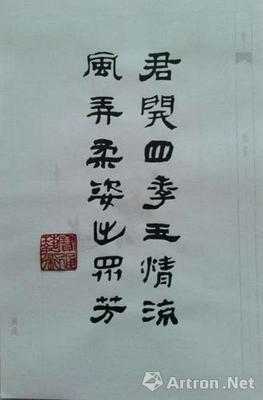 君開四季玉情流
風弄柔姿出眾芳
Artron.Net